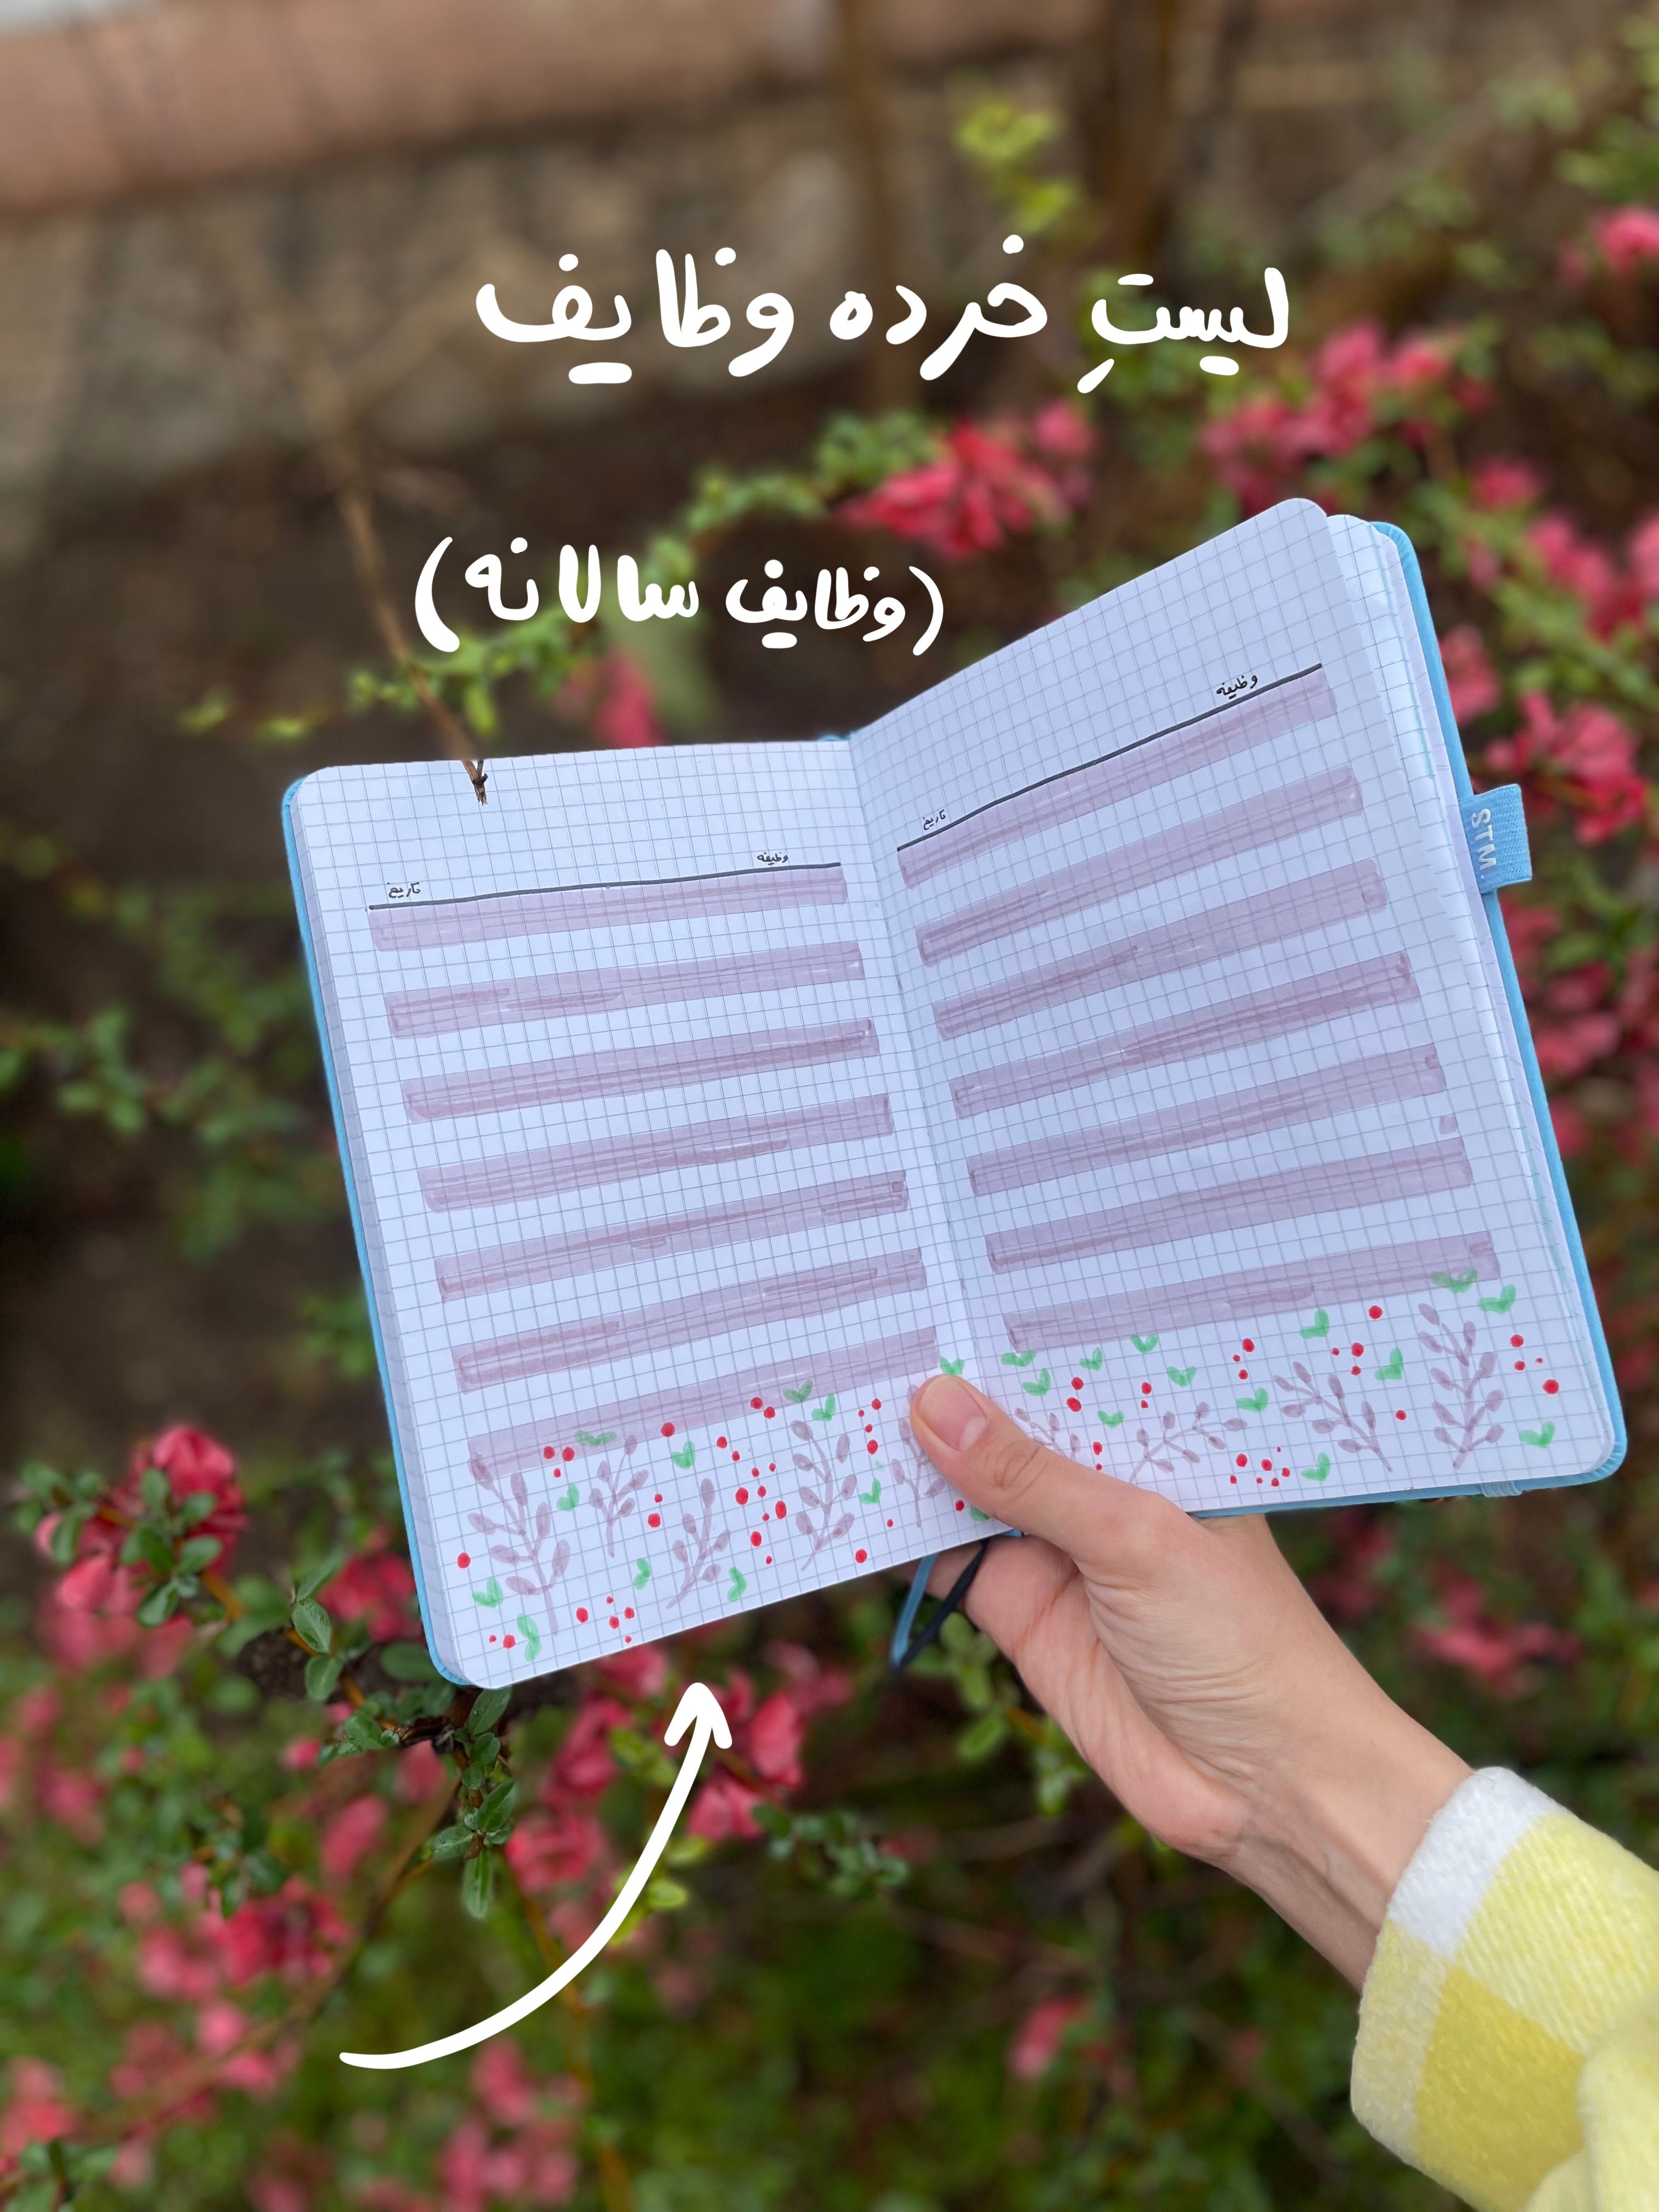 لیستِ خرده وظایف
(وظایف سالانه)
وظیفه
تاریخ
وظیفه
تاریخ
STM!